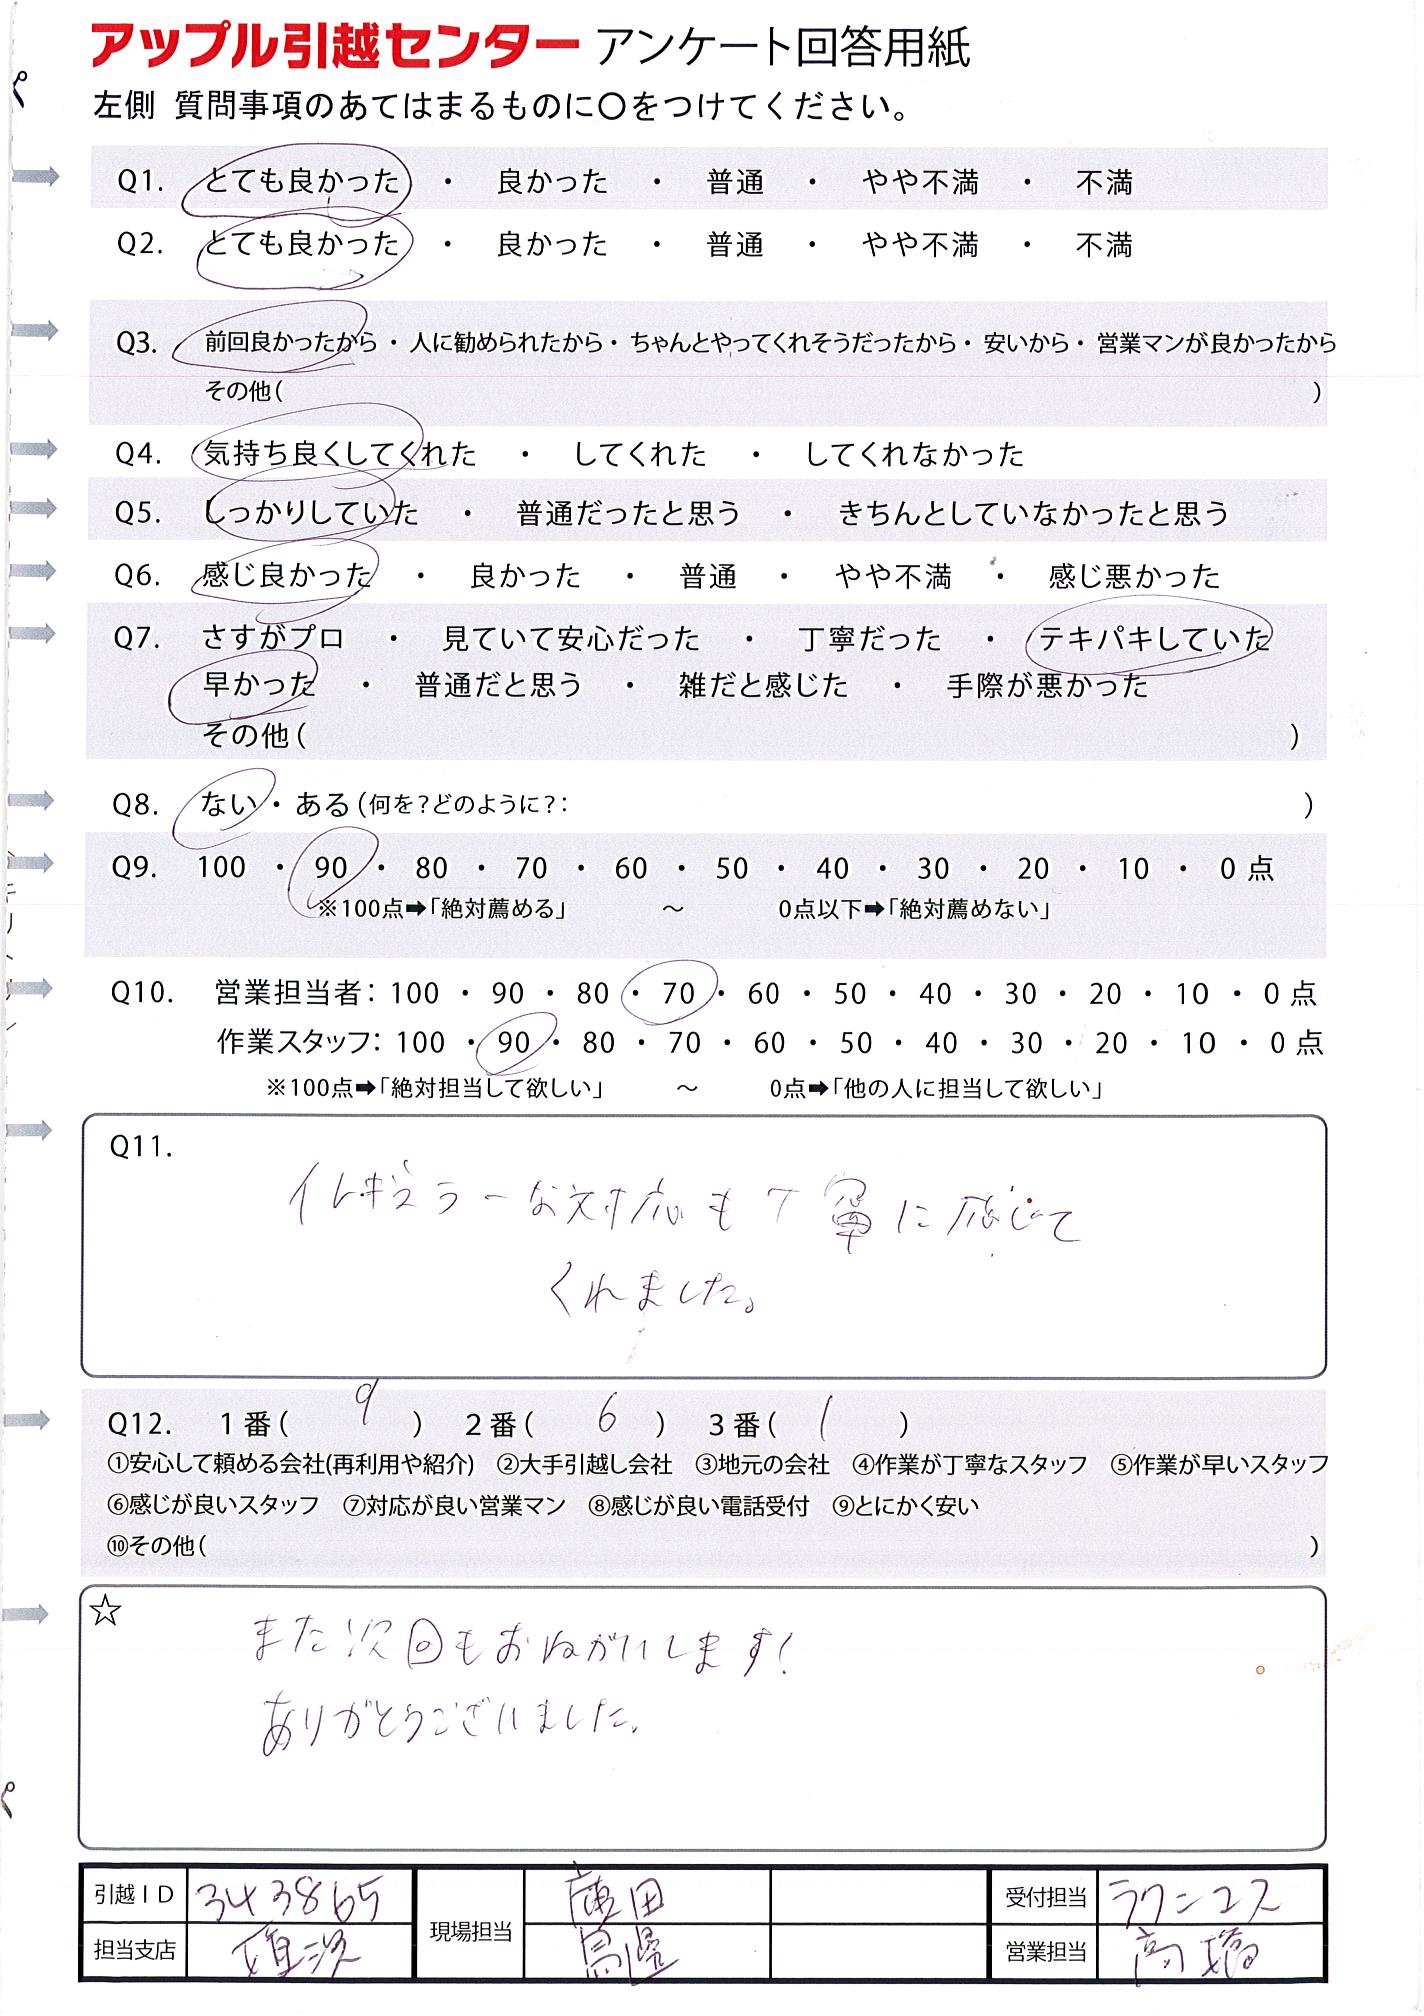 アップル引越センター アンケート回答用紙
左側 質問事項のあてはまるものに〇をつけてください。
Q1. とても良かった ・ 良かった ・ 普通 ・ やや不満 ・ 不満
Q2. とても良かった ・ 良かった ・ 普通 ・ やや不満 ・ 不満
Q3. 前回良かったから・人に勧められたから・ちゃんとやってくれそうだったから・安いから・営業マンが良かったから
その他( )
Q4. 気持ち良くしてくれた ・ してくれた ・ してくれなかった
Q5. しっかりしていた ・ 普通だったと思う ・ きちんとしていなかったと思う
Q6. 感じ良かった ・ 良かった ・ 普通 ・ やや不満 ・ 感じ悪かった
Q7. さすがプロ ・ 見ていて安心だった ・ 丁寧だった ・ テキパキしていた
早かった ・ 普通だと思う ・ 雑だと感じた ・ 手際が悪かった
その他( )
Q8. ない・ある(何を?どのように?: )
Q9. 100 ・ 90 ・ 80 ・ 70 ・ 60 ・ 50 ・ 40 ・ 30 ・ 20 ・ 10 ・ 0点
※100点➡「絶対薦める」 ～ 0点以下➡「絶対薦めない」
Q10. 営業担当者: 100 ・ 90 ・ 80 ・ 70 ・ 60 ・ 50 ・ 40 ・ 30 ・ 20 ・ 10 ・ 0点
作業スタッフ: 100 ・ 90 ・ 80 ・ 70 ・ 60 ・ 50 ・ 40 ・ 30 ・ 20 ・ 10 ・ 0点
※100点➡「絶対担当して欲しい」 ～ 0点➡「他の人に担当して欲しい」
Q11.
イレギュラーな対応も丁寧に応じて
くれました。
Q12. 1番( 9 ) 2番( 6 ) 3番( 1 )
①安心して頼める会社(再利用や紹介) ②大手引越し会社 ③地元の会社 ④作業が丁寧なスタッフ ⑤作業が早いスタッフ
⑥感じが良いスタッフ ⑦対応が良い営業マン ⑧感じが良い電話受付 ⑨とにかく安い
⑩その他( )
☆
また次回もおねがいします!
ありがとうございました。
引越ID 343865 現場担当 廣田 受付担当 ラクンコス
担当支店 営業担当 高橋